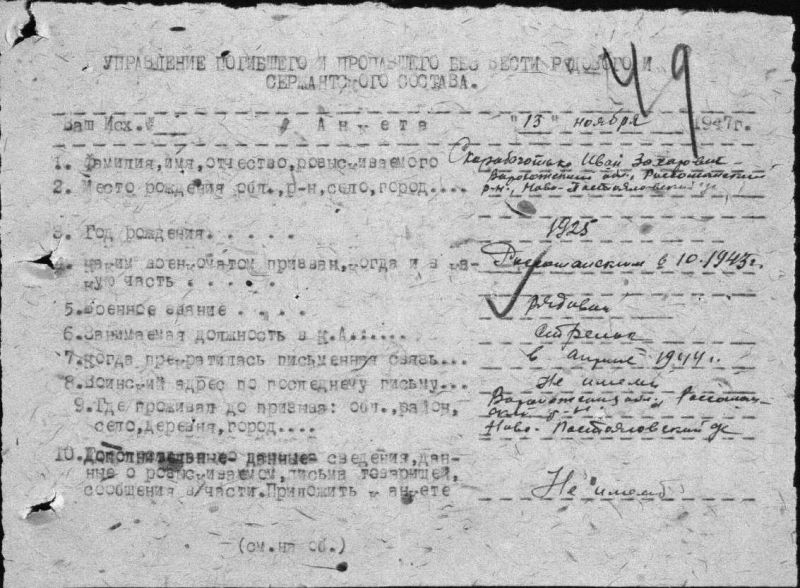 49
УПРАВЛЕНИЕ ПОГИБШЕГО И ПРОПАВШЕГО БЕЗ ВЕСТИ РЯДОВОГО И
СЕРЖАНТСКОГО СОСТАВА.
Ваш Исх.№ Анкета "13" ноября 1947г.
1. Фамилия,имя,отчество,розыскиваемого Скоробогатько Иван Захарович
2. Место рождения обл.,р-н,село,город.... Воронежский обл., Россошанский
р-н., Ново-Постояловский
3. Год рождения..... 1925
4. Каким военкоматом призван,когда и в ка- Россошанским в 10.1943г.
кую часть .....
5. Военное звание ..... рядовой
6. Занимаемая должность в К.А..... стрелок
7. Когда прекратилась письменная связь... в апреле 1944г.
8. Воинский адрес по последнему письму... Не имеем
9. Где проживал до призыва: обл.,район, Воронежский обл., Россошан-
село,деревня,город.... ский р-н.
Ново-Постояловский
10. Дополнительные данные сведения,дан-
ные о розыскиваемом,письма товарищей,
сообщения в/части.Приложить к анкете Не имеем
(см.на об.)